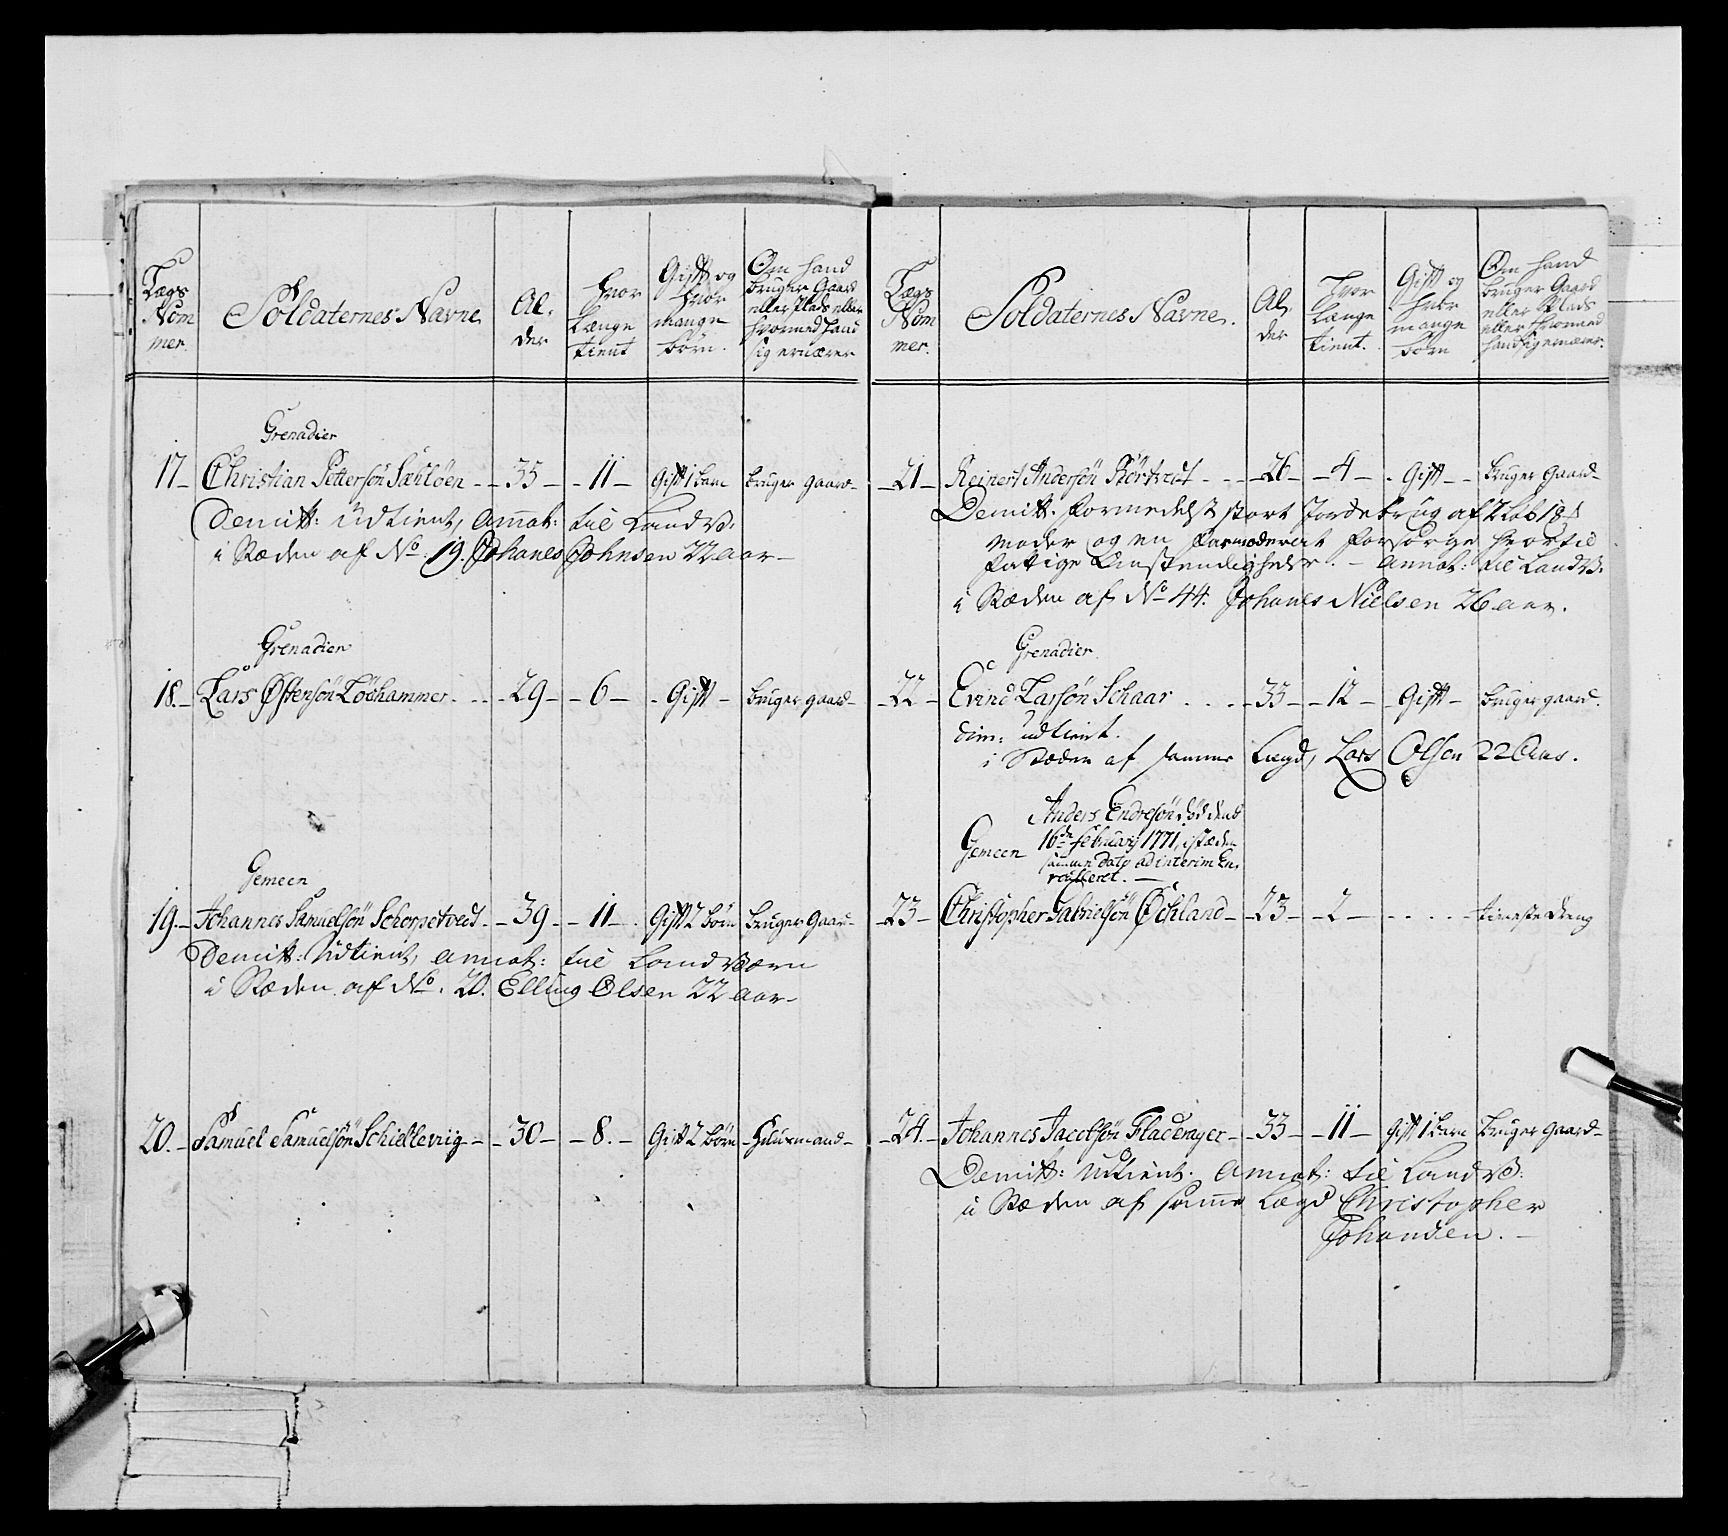 Lægs Nom mer. Soldaternes Navne Al, der Hvor Længe tient Gift og hvor mange børn. Om hand bruger Gaard eller Plads eller hvormed hand sig ernærer
Grenadier
17 Christian Pettersøn - 35 - 11 - Gift 1 barn bruger gaard
Demitt: udtient, Annot: til Landv:
i Stæden af No. 19. Johanes Johnsen 22 aar
Grenadier
18. Lars Østensøn Løehammer - 29 - 6 - Gift - bruger gaard
Gemeen
19. Johannes Samuelsøn Schorpetved - 39 - 11 - Gift 2 børn bruger Gaard
Demitt: udtient, annot: til Landværn
i Stæden af No. 20. Elling Olsen 22 aar
20. Samuel Samuelsøn Schiellevig - 30 - 8. - Gift 2 børn Huusmand
Lægs Nom mer. Soldaternes Navne. Al, der Hvor Længe tient. Gift og hvor mange børn Om hand bruger Gaard eller Plads eller hvormed hand sig ernærer.
21 Reinert Andersøn - 26 - 4 - Gift - bruger Gaard
Demitt. formedelst stort Jordebrug af
moder og en at forsørge hvortil
fattige Omstendigheder. - Annot: til Landv:
i Stæden af No 44. Johanes Nielsen 26 aar.
Grenadier
22 Evind Larsøn Schaar - 33 - 12 - Gift - bruger gaard.
dim: udtient.
i Stæden af samme Lægd, Lars Olsen 22 Aar.
Anders Endresøn død dend
Gemeen 16de February 1771, i stæden
samme Dato ad interim En,
roulleret.
23 Christopher Gabrielsøn Øchland - 23 - 2 - tieneste dreng
24. Johannes Jacobsøn Fladerager - 33 - 11 - Gift 1 barn bruger Gaard
Demitt: udtient. Annot: til Landv:
i Stæden af samme Lægd Christopher
Johansen.